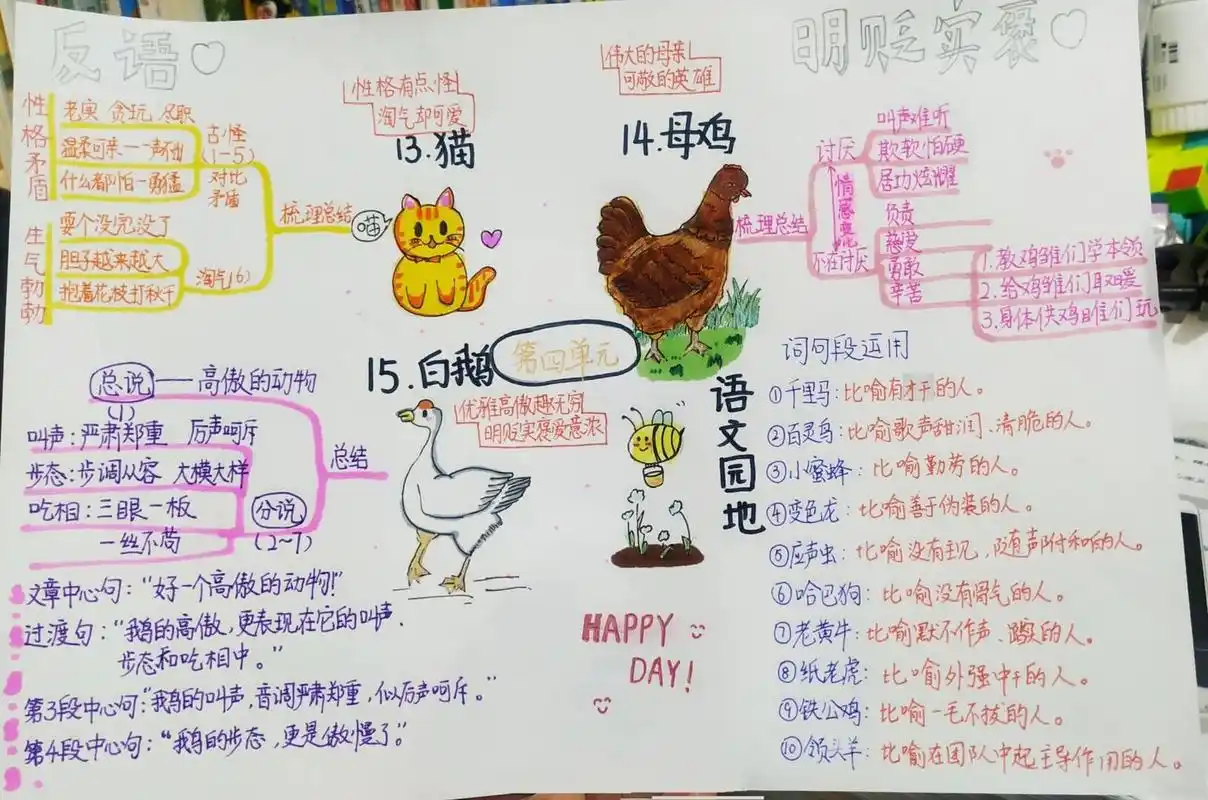 反语
明贬实褒
性格有点怪
淘气却可爱
13.猫
喵
梳理总结
古怪
(1-5)
对比
矛盾
性格矛盾
老实 贪玩 尽职
温柔可亲——声不出
什么都怕—勇猛
淘气(6)
生气勃勃
耍个没完没了
胆子越来越大
抱着花枝打秋千
伟大的母亲
可敬的英雄
14.母鸡
梳理总结
讨厌
叫声难听
欺软怕硬
居功炫耀
情感变化
不在讨厌
负责
慈爱
勇敢
辛苦
1.教鸡雏们学本领
2.给鸡雏们取暖
3.身体供鸡雏们玩
第四单元
15.白鹅
优雅高傲趣无穷
明贬实褒爱意浓
总结
总说——高傲的动物
(1)
叫声:严肃郑重 厉声呵斥
步态:步调从容 大模大样
吃相:三眼一板
一丝不苟
分说
(2~7)
文章中心句:“好一个高傲的动物!”
过渡句:“我鹅的高傲,更表现在它的叫声.
步态和吃相中。”
第3段中心句:“我鹅的叫声,音调严肃郑重,似厉声呵斥。”
第4段中心句:“我鹅的步态,更是傲慢了。”
HAPPY
DAY!
语文园地
词句段运用
①千里马:比喻有才干的人。
②百灵鸟:比喻歌声甜润、清脆的人。
③小蜜蜂:比喻勤劳的人。
④变色龙:比喻善于伪装的人。
⑤应声虫:比喻没有主见,随声附和的人。
⑥哈巴狗:比喻没有骨气的人。
⑦老黄牛:比喻默不作声、踏实的人。
⑧纸老虎:比喻外强中干的人。
⑨铁公鸡:比喻一毛不拔的人。
⑩领头羊:比喻在团队中起主导作用的人。